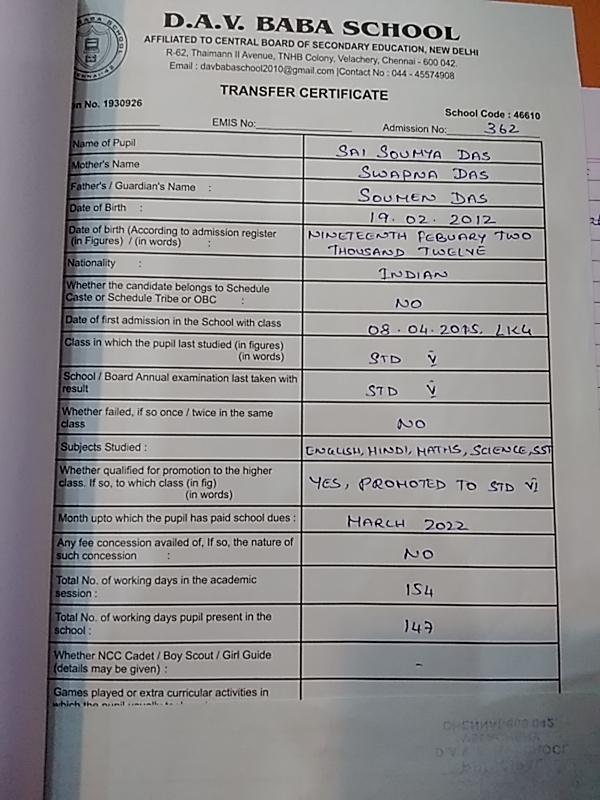 D.A.V. BABA SCHOOL
AFFILIATED TO CENTRAL BOARD OF SECONDARY EDUCATION, NEW DELHI
R-62, Thaimann II Avenue, TNHB Colony, Velachery, Chennai - 600 042.
Email : davbabaschool2010@gmail.com |Contact No : 044 - 45574908
TRANSFER CERTIFICATE
on No. 1930926 School Code : 46610
EMIS No: Admission No: 362
Name of Pupil SAI SOUMYA DAS
Mother's Name SWAPNA DAS
Father's / Guardian's Name : SOUMEN DAS
Date of Birth : 19.02.2012
Date of birth (According to admission register NINETEENTH FEBUARY TWO
(in Figures) / (in words) : THOUSAND TWELVE
Nationality : INDIAN
Whether the candidate belongs to Schedule
Caste or Schedule Tribe or OBC : NO
Date of first admission in the School with class 08.04.2015. LKG
Class in which the pupil last studied (in figures)
(in words) STD V
School / Board Annual examination last taken with
result STD V
Whether failed, if so once / twice in the same
class NO
Subjects Studied : ENGLISH, HINDI, MATHS, SCIENCE, SST
Whether qualified for promotion to the higher
class. If so, to which class (in fig) YES, PROMOTED TO STD VI
(in words)
Month upto which the pupil has paid school dues : MARCH 2022
Any fee concession availed of, If so, the nature of
such concession : NO
Total No. of working days in the academic
session : 154
Total No. of working days pupil present in the
school : 147
Whether NCC Cadet / Boy Scout / Girl Guide
(details may be given) : -
Games played or extra curricular activities in